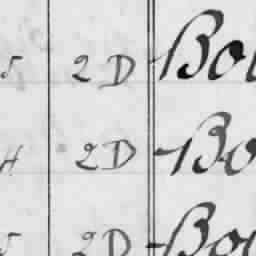 5 2D Bou
H 2D Bo
5 2D Bou